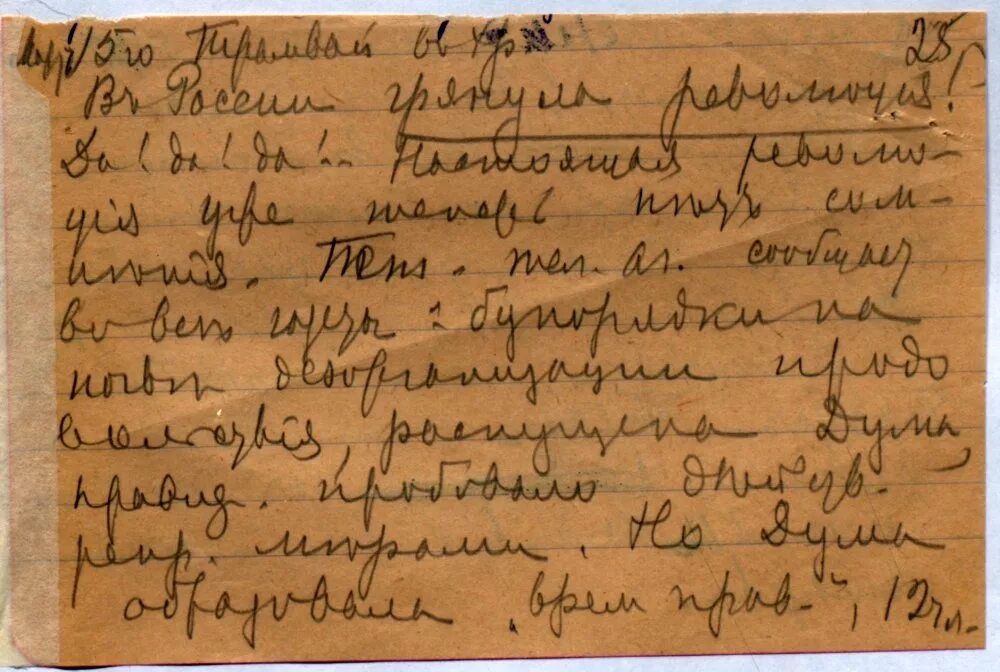 Март 15го Трамвай въ 25
Въ Россіи грянула революція!
Да! да! да!.. Настоящая револю-
ція уже теперь нѣтъ сом-
нѣнія. тел. аг. сообщает
во всѣ : безпорядки на
почвѣ дезорганизаціи продо
вольствія, распущена Дума,
правит. пробовало дѣйств.
репр. мѣрами. Но Дума
образовала „врем прав-“, 12 чл.